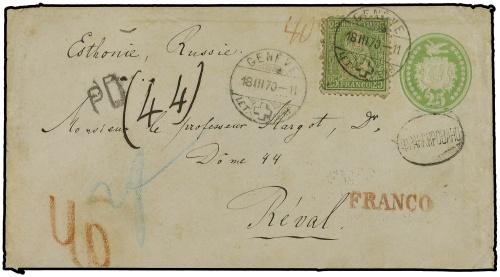 40
Esthonie, Russie.
GENÈVE
18 III 70 - 11
GENÈVE
18 III 70 - 11
FRANCO
25
PD
(44)
Monsieur le Professeur Margot, Dr.
Dôme 44
Réval.
FRANCO
40